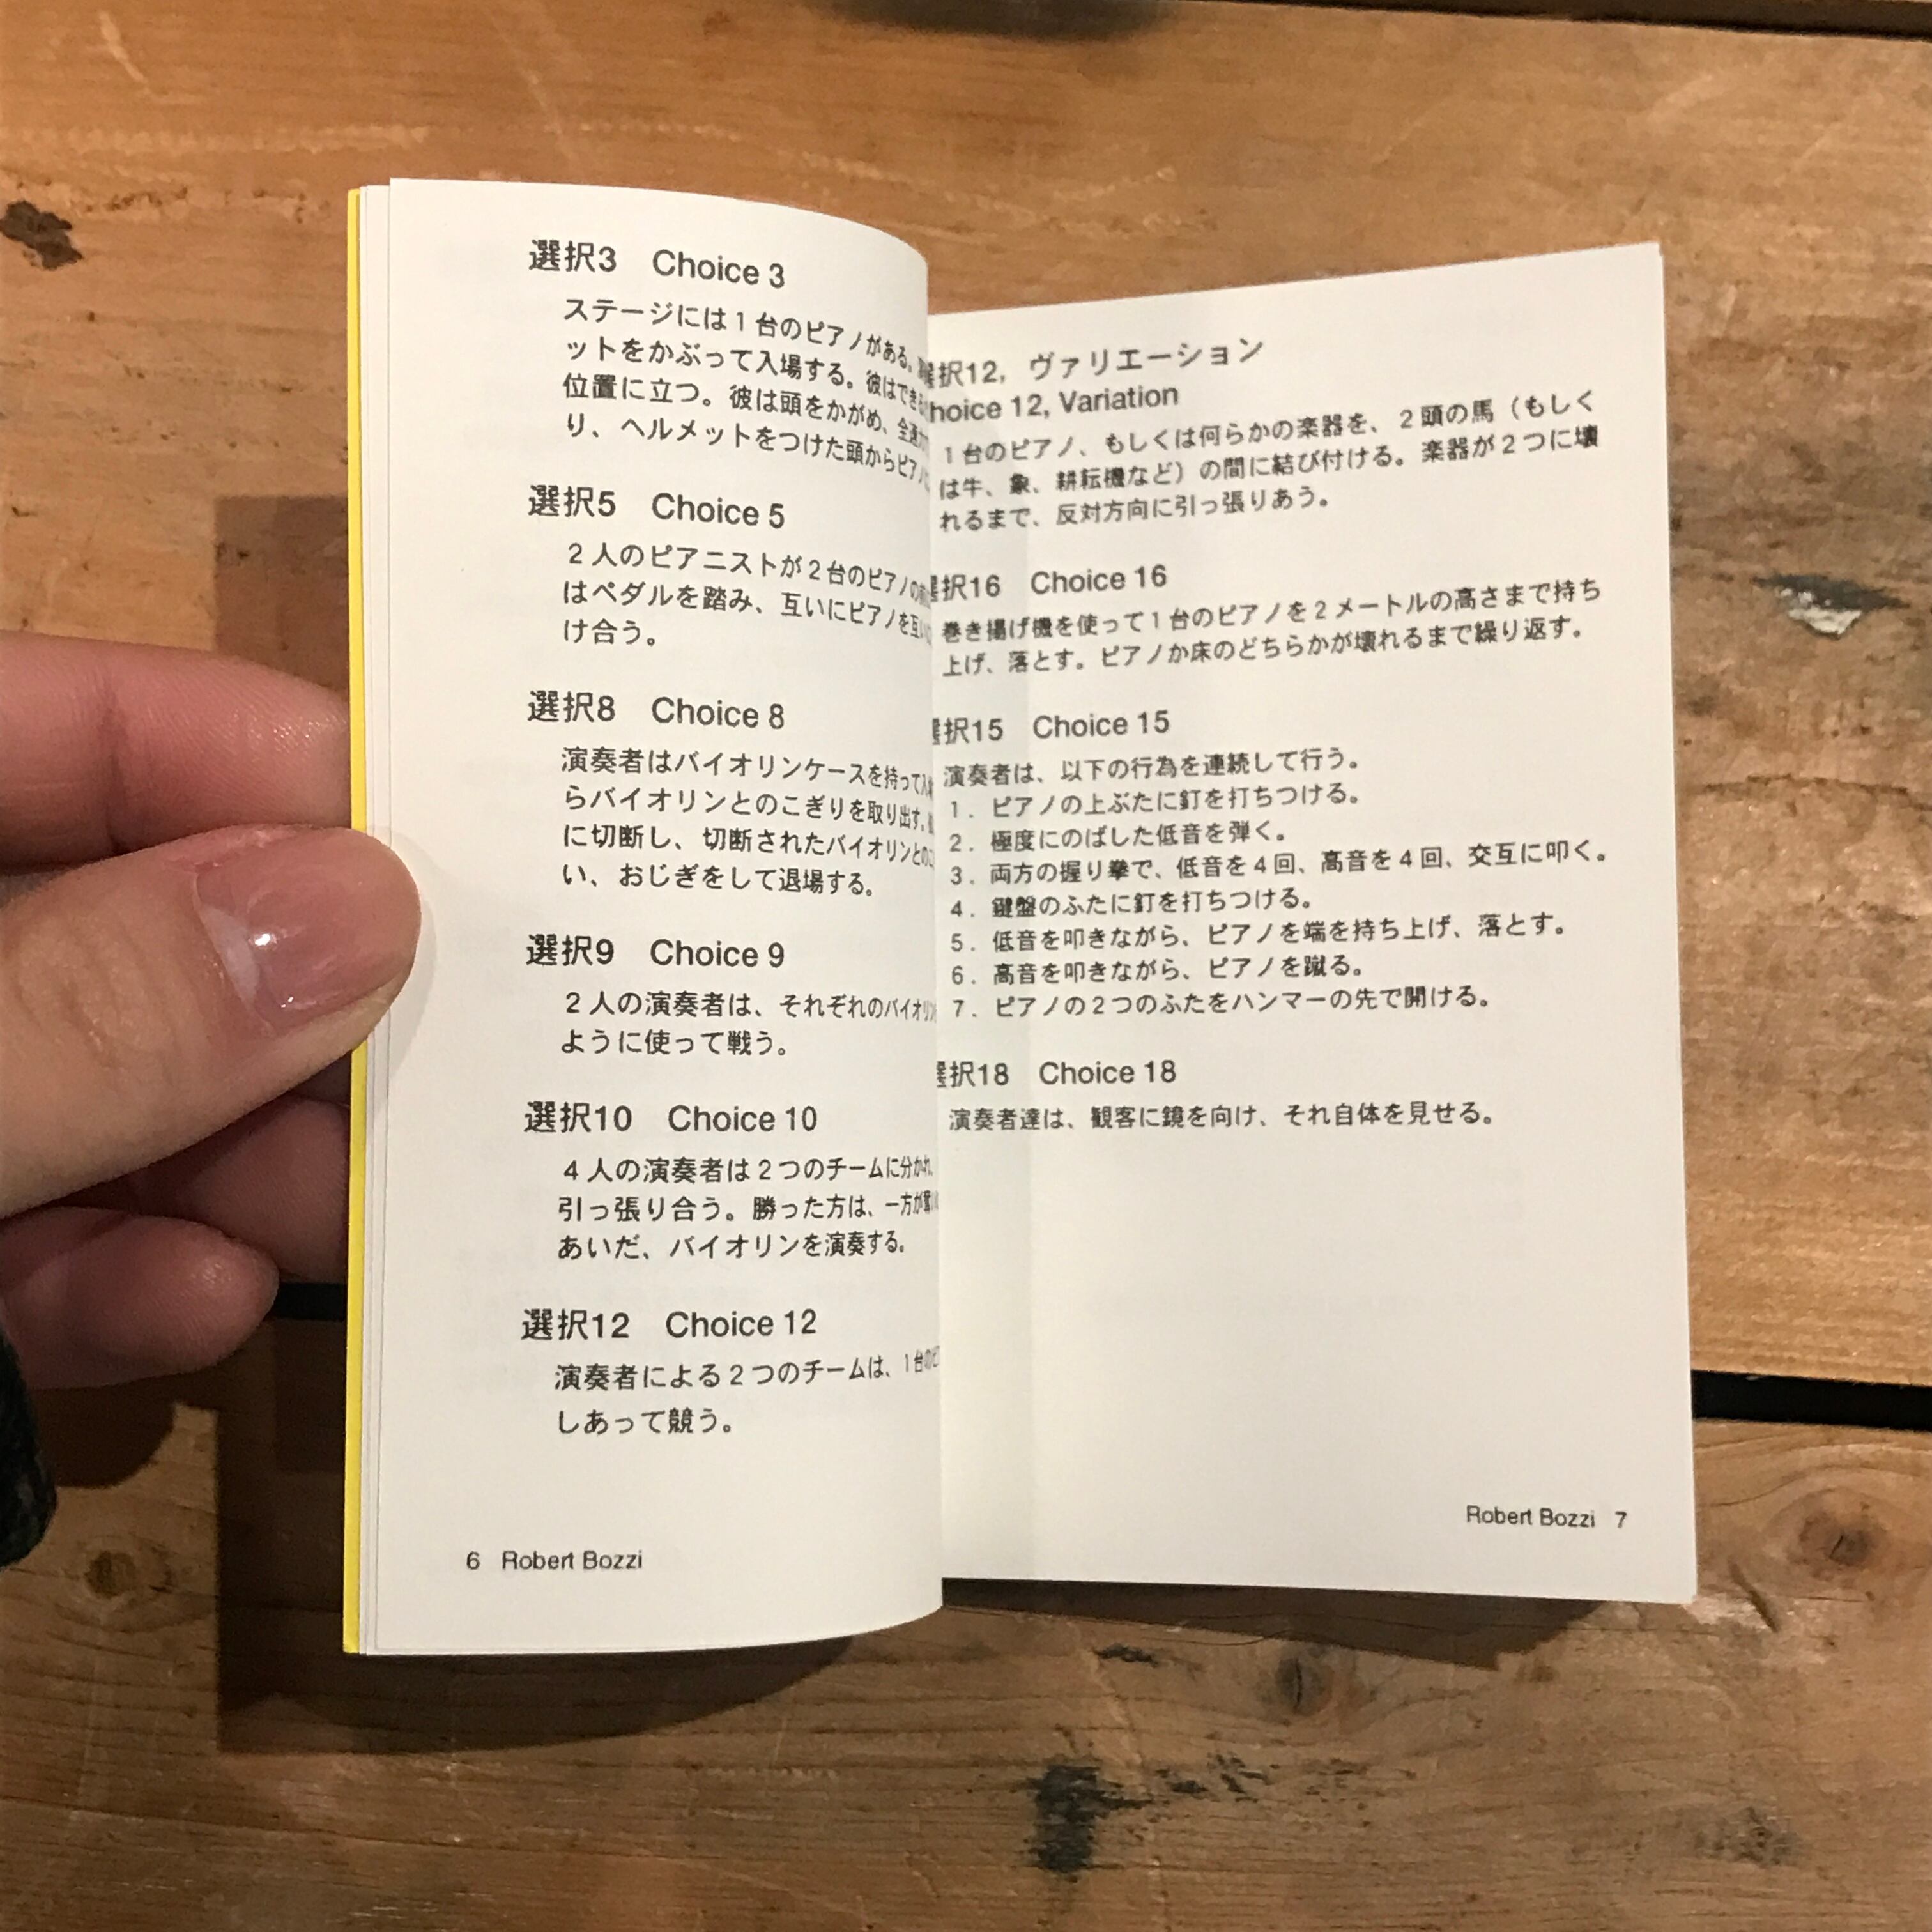 選択3 Choice 3
ステージには1台のピアノがある。
ットをかぶって入場する。彼はでき
位置に立つ。彼は頭をかがめ、全
り、ヘルメットをつけた頭からピアノ
選択5 Choice 5
2人のピアニストが2台のピアノの
はペダルを踏み、互いにピアノを互い
け合う。
選択8 Choice 8
演奏者はバイオリンケースを持って入
らバイオリンとのこぎりを取り出す。
に切断し、切断されたバイオリンとのこ
い、おじぎをして退場する。
選択9 Choice 9
2人の演奏者は、それぞれのバイオリン
ように使って戦う。
選択10 Choice 10
4人の演奏者は2つのチームに分かれ、
引っ張り合う。勝った方は、一方が
あいだ、バイオリンを演奏する。
選択12 Choice 12
演奏者による2つのチームは、1台のピ
しあって競う。
6 Robert Bozzi
択12, ヴァリエーション
hoice 12, Variation
1台のピアノ、もしくは何らかの楽器を、2頭の馬（もしく
は牛、象、耕耘機など）の間に結び付ける。楽器が2つに壊
れるまで、反対方向に引っ張りあう。
択16 Choice 16
巻き揚げ機を使って1台のピアノを2メートルの高さまで持ち
上げ、落とす。ピアノか床のどちらかが壊れるまで繰り返す。
択15 Choice 15
演奏者は、以下の行為を連続して行う。
1. ピアノの上ぶたに釘を打ちつける。
2. 極度にのばした低音を弾く。
3. 両方の握り拳で、低音を4回、高音を4回、交互に叩く。
4. 鍵盤のふたに釘を打ちつける。
5. 低音を叩きながら、ピアノを端を持ち上げ、落とす。
6. 高音を叩きながら、ピアノを蹴る。
7. ピアノの2つのふたをハンマーの先で開ける。
選択18 Choice 18
演奏者達は、観客に鏡を向け、それ自体を見せる。
Robert Bozzi 7